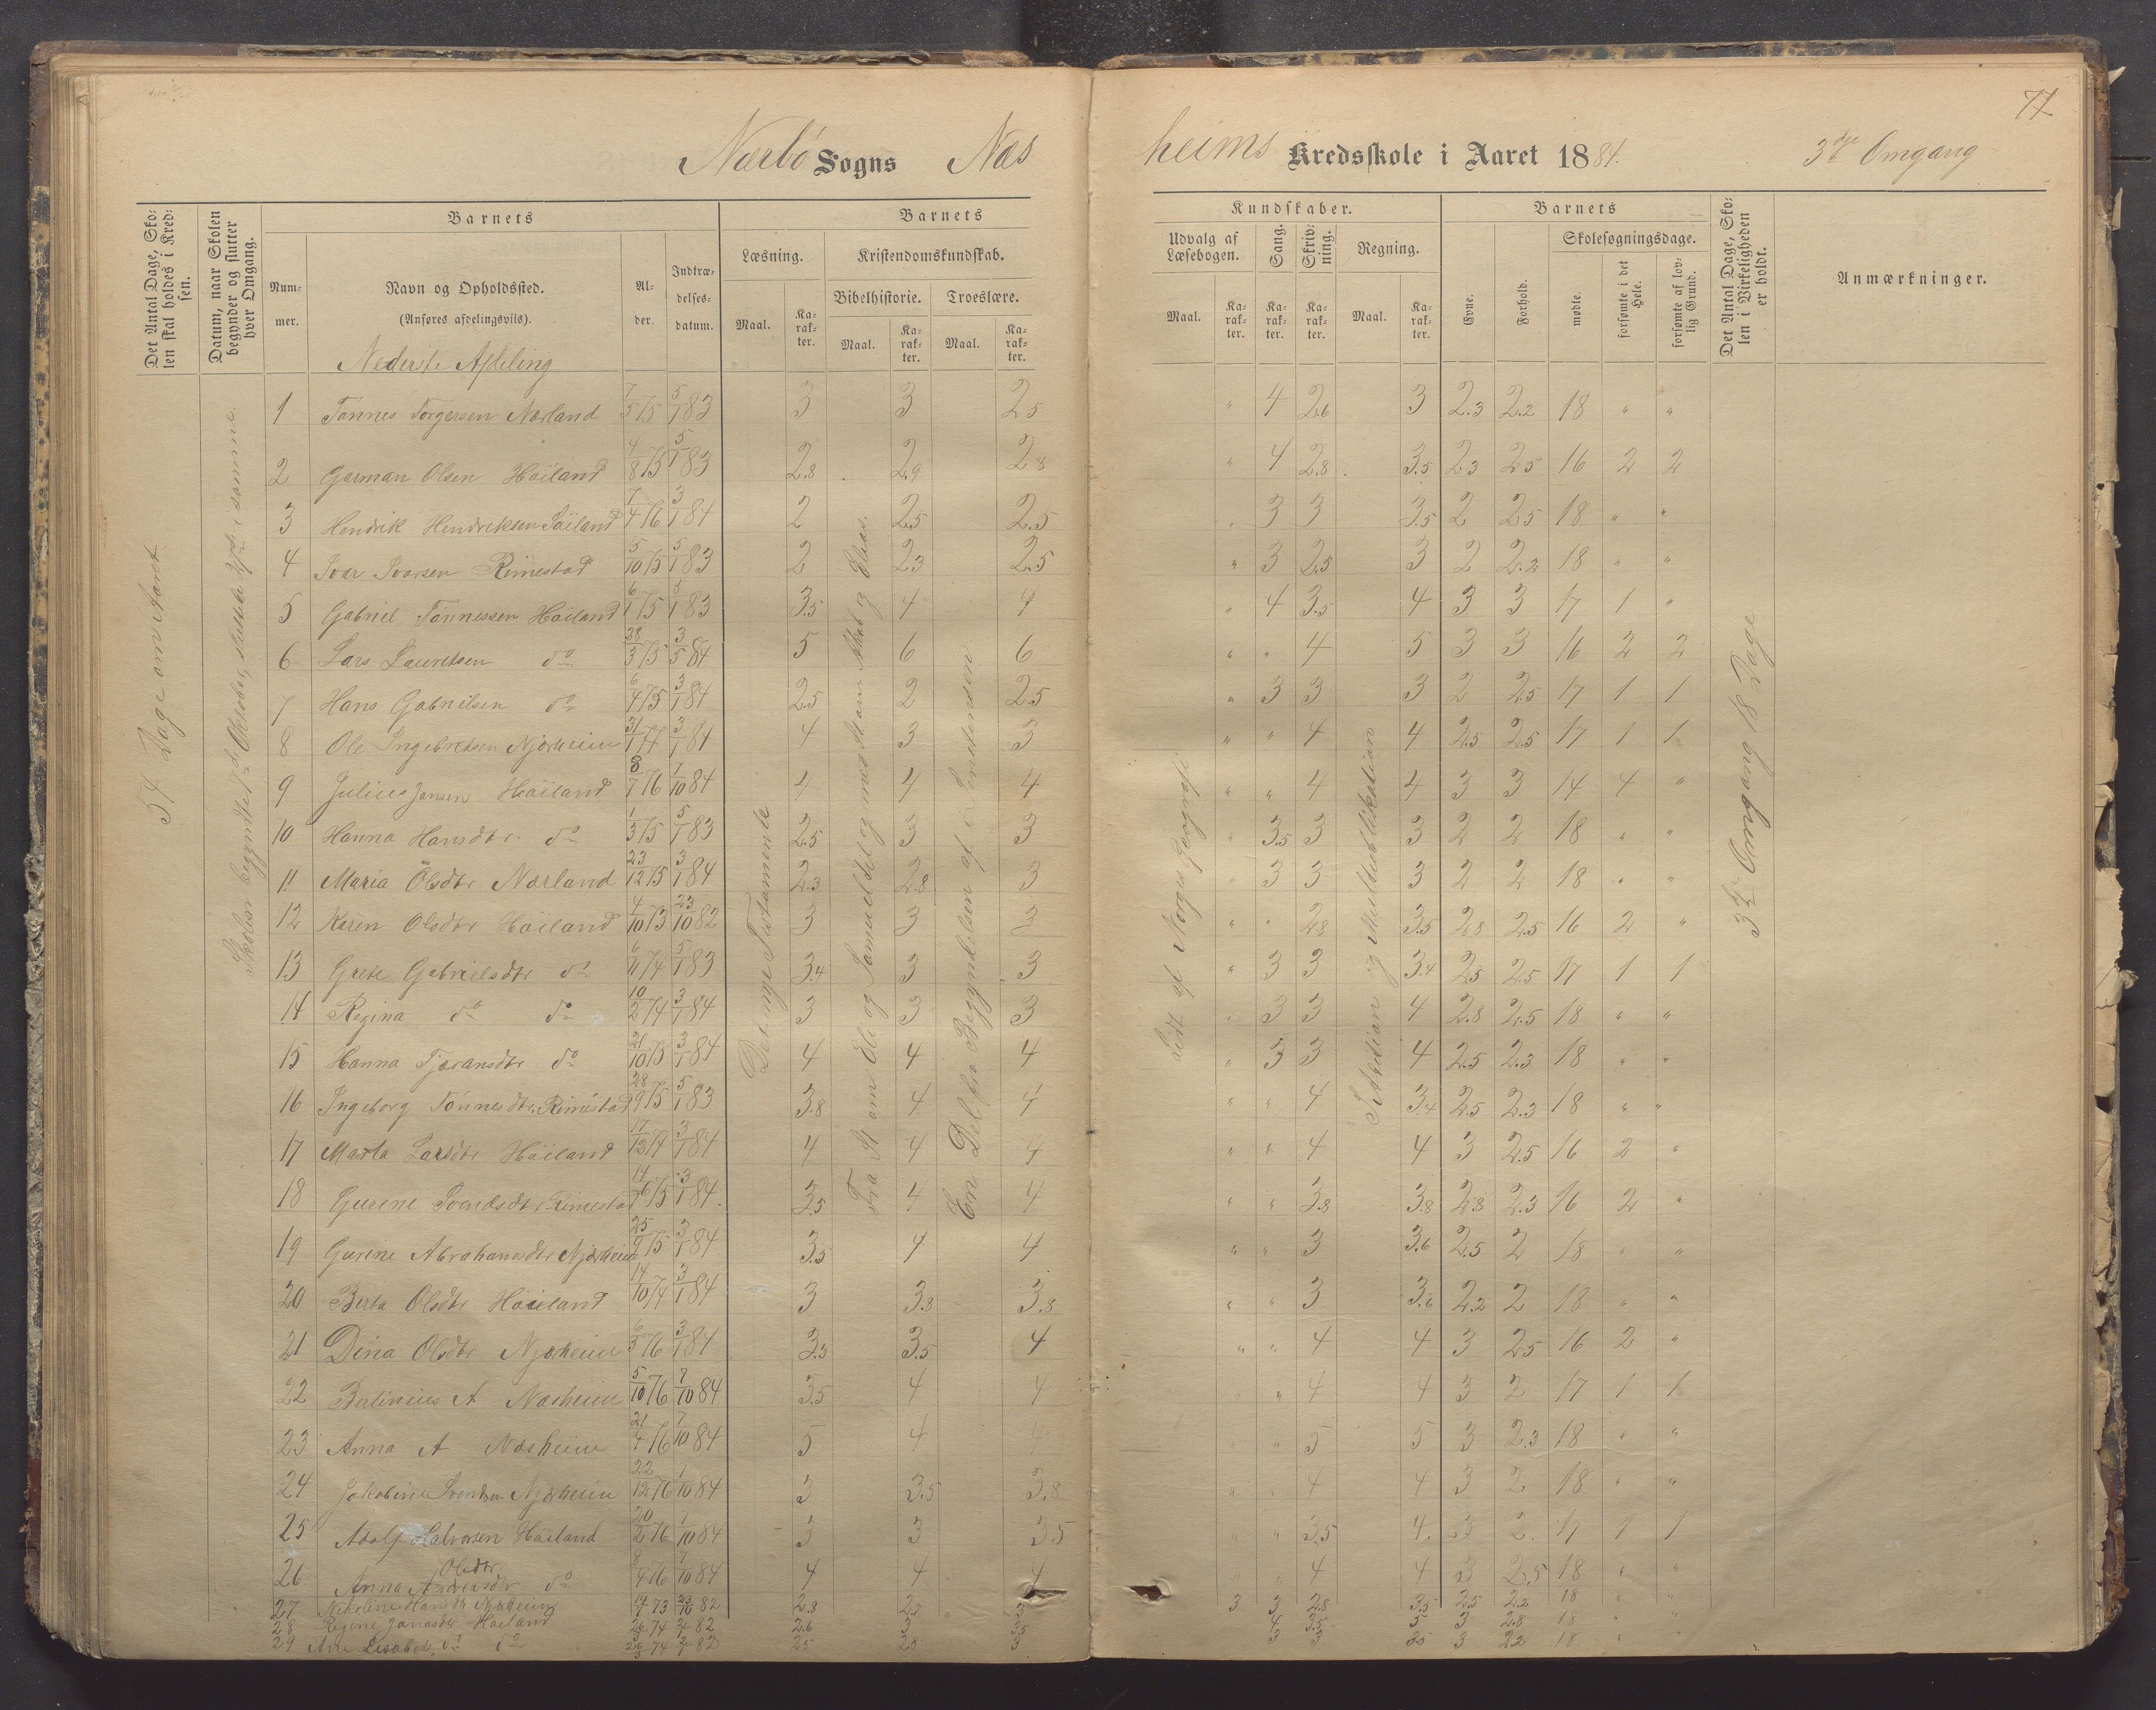 77
Nærbö Sogns Næsheims Kredsskole i Aaret 1884. 3die Omgang
Det Antal Dage, Skolen skal holdes i Kredsen.
Datum, naar Skolen begynder og slutter hver Omgang.
Barnets
Nummer.
Navn og Opholdssted.
(Anføres afdelingsviis).
Alder.
Indtrædelsesdatum.
Barnets Kundskaber.
Læsning.
Maal.
Karakter.
Kristendomskundskab.
Bibelhistorie.
Maal.
Karakter.
Troeslære.
Maal.
Karakter.
Udvalg af Læsebogen.
Maal.
Karakter.
Sang.
Karakter.
Skrivning.
Karakter.
Regning.
Maal.
Karakter.
Barnets
Evne.
Forhold.
Skolesøgningsdage.
mødte.
forsømte i det Hele.
forsømte af lovlig Grund.
Det Antal Dage, Skolen i Virkeligheden er holdt.
Anmærkninger.
Nederste Afdeling
54 Dage om Aaret
Skolen begyndte 7de Oktober, sluttede i samme
Det nye Testamente
Fra Stam Eli og Samuel til og med Stam Akab og Elias.
En Del fra Begyndelsen af
Lidt af Norges Geografi
Addition og Multiplikation
3die Omgang 18 Dage
1 Tönnes Torgersen Nærland 7/5 75 5/1 83 3 3 2.5 " 4 2.6 3 2.3 2.2 18 " "
2 Garman Olsen Höiland 4/8 75 5/1 83 2.8 2.9 2.8 " 4 2.8 3.5 2.3 2.5 16 2 2
3 Hendrik Hendriksen Söiland 7/4 76 3/1 84 2 2.5 2.5 " 3 3 3.5 2 2.5 18 " "
4 Ivar Ivarsen Rimestad 5/10 75 5/1 83 2 2.3 2.5 " 3 2.5 3 2 2.2 18 " "
5 Gabriel Tönnessen Höiland 6/1 75 5/1 83 3.5 4 4 " 4 3.5 4 3 3 17 1 "
6 Lars Lauretsen do 28/3 75 3/5 84 5 6 6 " " 4 5 3 3 16 2 2
7 Hans Gabrielsen do 6/4 75 3/1 84 2.5 2 2.5 " 3 3 3 2 2.5 17 1 1
8 Ole Ingebretsen Njærheim 31/1 77 3/1 84 4 3 3 " " 4 4 2.5 2.5 17 1 1
9 Julius Jansen Höiland 8/7 76 7/10 84 4 4 4 " " 4 4 3 3 14 4 "
10 Hanna Hansdtr do 1/3 75 5/1 83 2.5 3 3 " 3.5 3 3 2 2 18 " "
11 Maria Olsdtr Nærland 23/12 75 3/1 84 2.3 2.8 3 " 3 3 3 2 2 18 " "
12 Karen Olsdtr Höiland 4/10 73 23/10 82 3 3 3 " " 2.8 3.5 2.8 2.5 16 2 "
13 Grete Gabrielsdtr do 6/11 74 5/1 83 3.4 3 3 " 3 3 3.4 2.5 2.5 17 1 1
14 Regina do do 10/2 74 3/1 84 3 3 3 " 3 3 4 2.8 2.5 18 " "
15 Hanna Tjöransdtr do 21/10 75 3/1 84 4 4 4 " 3 3 4 2.5 2.3 18 " "
16 Ingeborg Tönnesdtr. Rimestad 28/9 75 5/1 83 3.8 4 4 " " 4 3.4 2.5 2.3 18 " "
17 Marta Larsdtr Höiland 17/12 74 3/1 84 4 4 4 " " 4 4 3 2.5 16 2 "
18 Gurine Svendsdtr Rimestad 14/6 75 3/1 84. 3.5 4 4 " " 3.8 3.8 2.8 2.3 16 2 "
19 Gurine Abrahamsdtr Njærheim 25/9 75 3/1 84 3.5 4 4 " " 3 3.6 2.5 2 18 " "
20 Berta Olsdtr Höiland 14/10 74 3/1 84 3 3.8 3.8 " " 3 3.6 2.2 2 18 " "
21 Dina Olsdtr Njærheim 6/5 76 3/1 84 3.3 3.5 4 " " 4 4 3 2.5 16 2 "
22 Berlinius A Næsheim 5/10 76 7/10 84 3.5 4 4 " 4 4 3 2 17 1 1
23 Anna A Næsheim 21/4 76 7/10 84 5 4 4 " 5 5 3 2.3 18 " "
24 Jakobine Svendsen Njærheim 22/12 76 1/10 84 3 3.5 3.8 " " 4 4 3 2 18 " "
25 Adolf Halvorsen Höiland 20/2 76 1/10 84 3 3 3.5 " " 3.5 4. 3 2. 17 1 1
26 Anna Andreasdtr Olsdtr do 8/4 76 7/10 84 4 4 4 " " 4 4 3 2.5 18 " "
27 Nikoline Hansdtr Njærheim 14/7 73 23/10 82 2.8 2.7 3 3 2.8 3.5 2.5 2.2 18 "
28 Regine Jonasdtr Höiland 74 82 2.6 3 3.5 4 3.5 5 3 2.8 18 "
29 Ane Lisabet do do 74 82 2.5 2.8 3 3 3 3.5 3 2.2 18 "